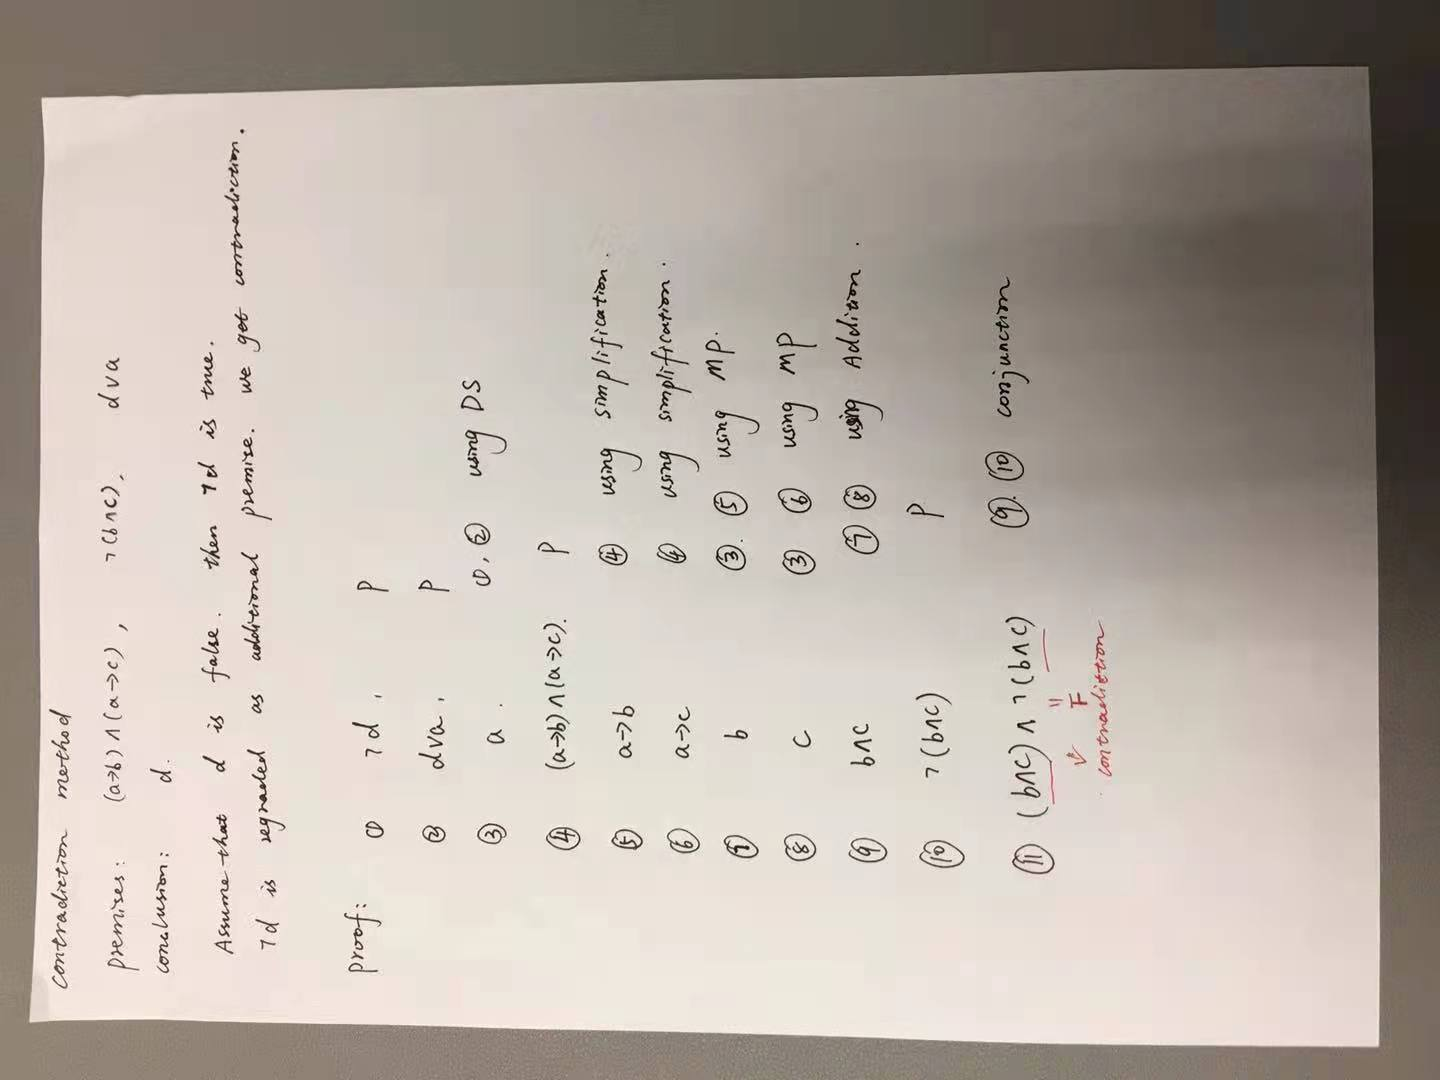 contradiction method
premises: (a→b)∧(a→c), ¬(b∧c), d∨a
conclusion: d.
Assume that d is false. then ¬d is true.
¬d is regraded as additional premise. we get contradiction.
proof: ① ¬d, P
② d∨a, P
③ a. ①,② using DS
④ (a→b)∧(a→c). P
⑤ a→b ④ using simplification.
⑥ a→c ④ using simplification.
⑦ b ③. ⑤ using MP.
⑧ c ③ ⑥ using MP
⑨ b∧c ⑦ ⑧ using Addition.
⑩ ¬(b∧c) P
⑪ (b∧c) ∧ ¬(b∧c) ⑨. ⑩ conjunction
⇓ = F
contradiction